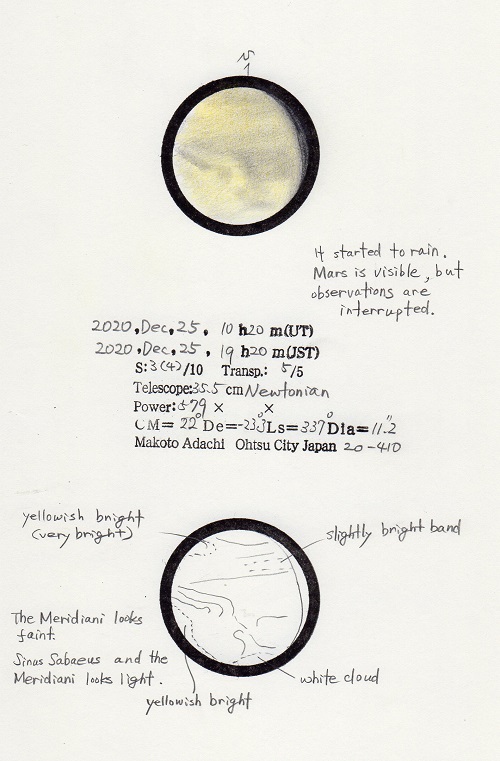 N
It started to rain.
Mars is visible, but
observations are
interrupted.
2020, Dec, 25, 10 h20 m(UT)
2020, Dec, 25, 19 h20 m(JST)
S: 3(4)/10 Transp.: 5/5
Telescope: 35.5 cm Newtonian
Power: 579 × ×
CM= 22° De=-23.3° Ls= 337° Dia= 11.2"
Makoto Adachi Ohtsu City Japan 20-410
yellowish bright
(very bright)
slightly bright band
The Meridiani looks
faint.
Sinus Sabaeus and the
Meridiani looks light.
white cloud
yellowish bright